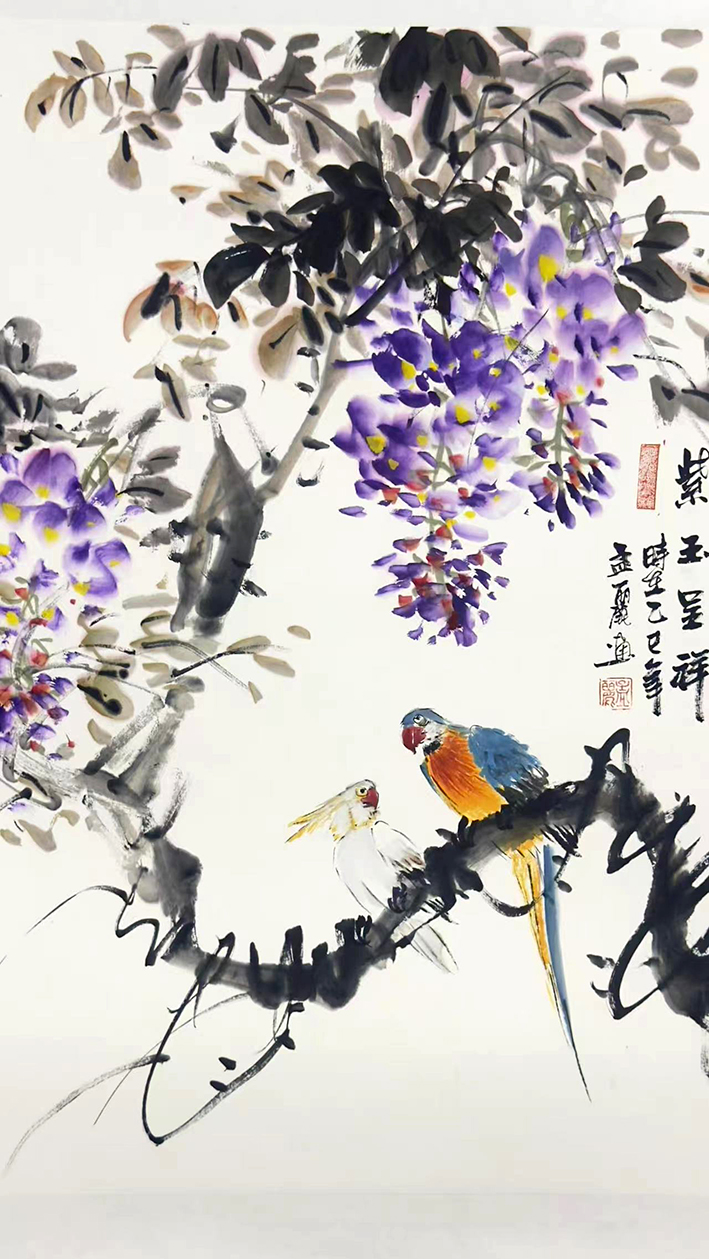 紫玉呈祥
時在乙巳年
孟麗画